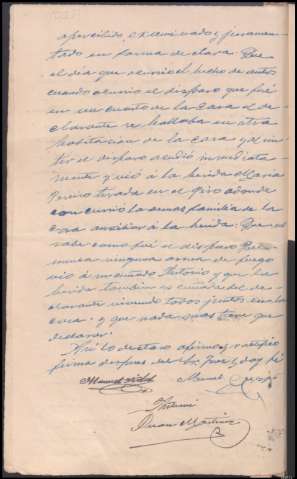 apercibido, examinado y juramen-
tado en forma declara: Que
el dia que se inició el hecho de autos
cuando ocurrió el disparo que fué
en un cuarto de la casa el de-
clarante se hallaba en otra
habitación de la casa y al sen-
tir el disparo acudió inmediata-
mente y vió á la herida Maria
tirada en el piso adonde
concurrió la demas familia de la
casa auxiliar á la herida: Que no
sabe como fué el disparo
ninguna arma de fuego
vió á Antonio y que la
herida tambien es cuñada del de-
clarante viviendo todos juntos en la
casa. y que nada mas tiene que
declarar.
Asi lo declaró afirmó y ratificó
firma despues del Sr. Juez y doy fé
Manuel
Manuel
Antemi
Juan Martinez